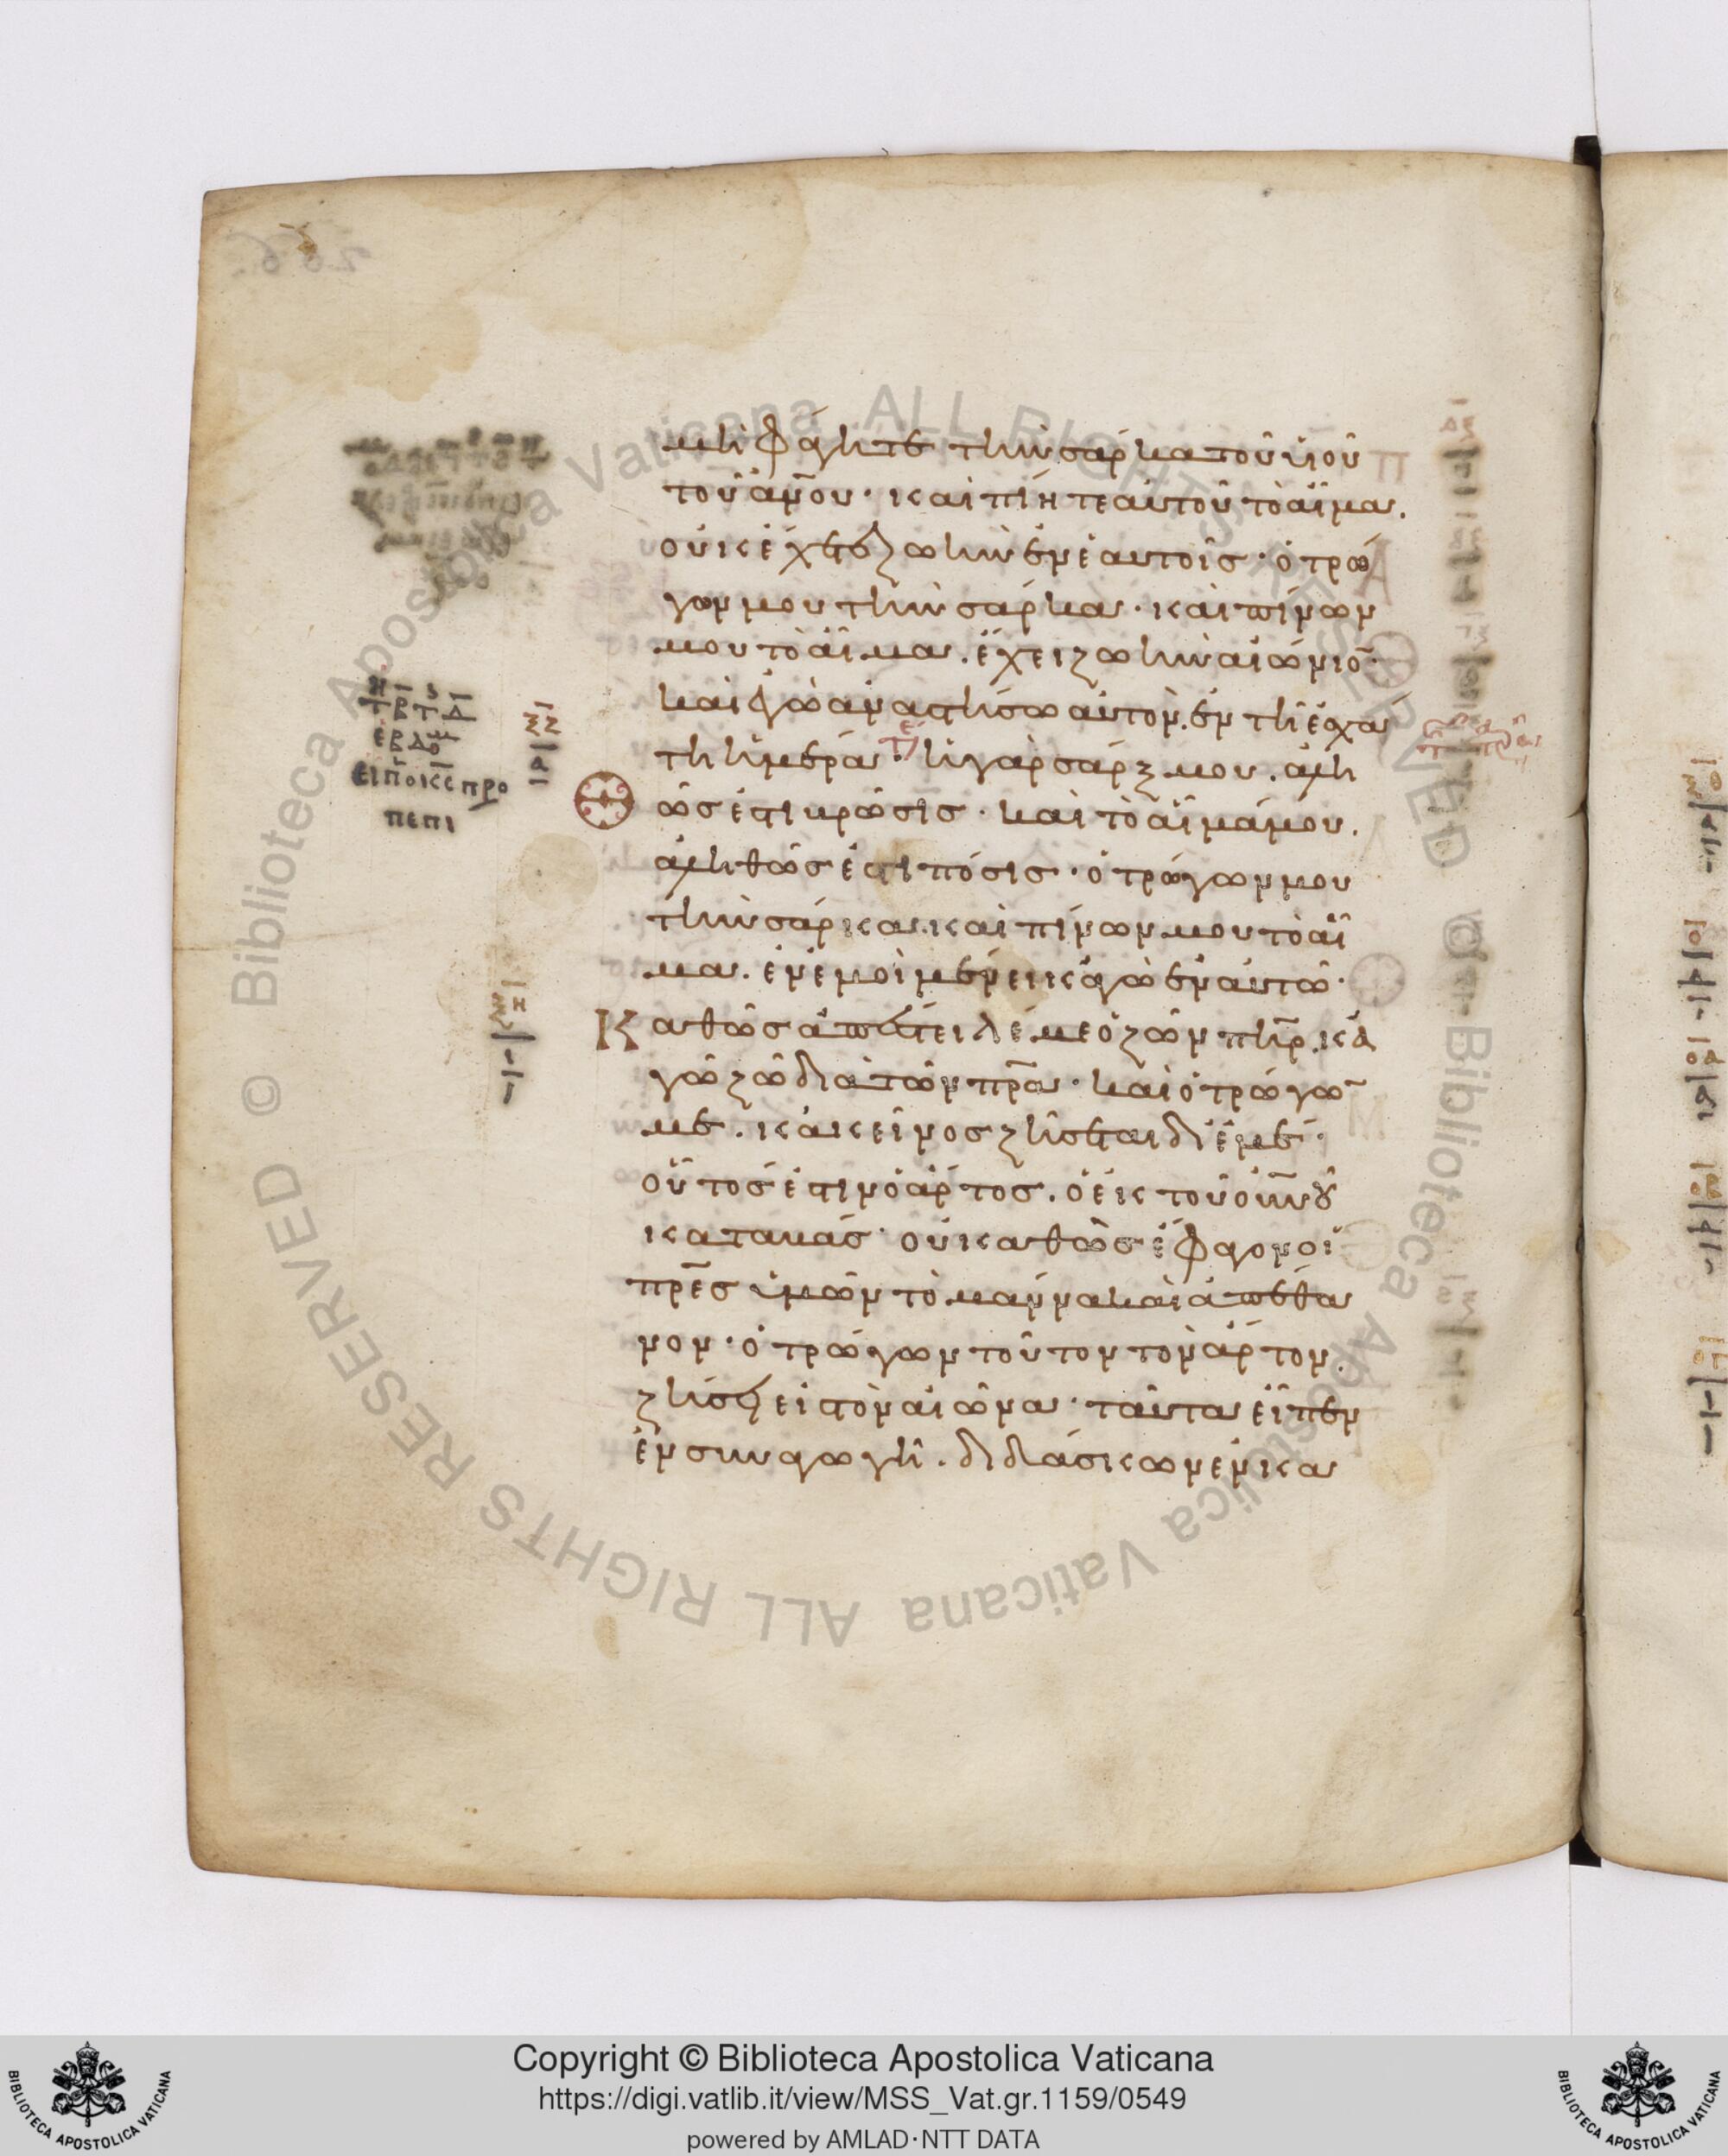 μὴ φάγητε τὴν σάρκα τοῦ υἱοῦ
τοῦ ἀν̅ου· καὶ πίητε αὐτοῦ τὸ αἷμα.
οὐκ ἔχετε ζωὴν ἐν ἑαυτοῖς· ὁ τρώ
γων μου τὴν σάρκα· καὶ πίνων
μου τὸ αἷμα. ἔχει ζωὴν αἰώνιο̅·
καὶ ἐγὼ ἀναστήσω αὐτὸν. ἐν τῆ ἐσχά
τη ἡμέρα· ἡ γὰρ σάρξ μου. ἀλη
θῶς ἐστι βρῶσις· καὶ τὸ αἷμά μου.
ἀληθῶς ἐστι πόσις· ὁ τρώγων μου
τὴν σάρκα. καὶ πίνων μου τὸ αἷ
μα. ἐν ἐμοὶ μένει κἀγὼ ἐν αὐτῶ·
Καθὼς ἀπέστειλέ με ὁ ζῶν πη̅ρ. κἀ
γὼ ζῶ διὰ τὸν πρ̅α· καὶ ὁ τρώγω̅
με. κἀκεῖνος ζήσεται δι' ἐμέ·
οὗτός ἐστιν ὁ ἄρτος. ὁ ἐκ τοῦ οὐν̅ου
καταβάς· οὐ καθὼς ἔφαγον οἱ
πρ̅ες ὑμῶν τὸ μάννα καὶ ἀπέθα
νον· ὁ τρώγων τοῦτον τὸν ἄρτον.
ζήσει εἰς τὸν αἰῶνα· ταῦτα εἶπεν
ἐν συναγωγῆ. διδάσκων ἐν κα
Biblioteca Apostolica Vaticana ALL RIGHTS RESERVED ©
Biblioteca Apostolica Vaticana ALL RIGHTS RESERVED ©
Copyright © Biblioteca Apostolica Vaticana
https://digi.vatlib.it/view/MSS_Vat.gr.1159/0549
powered by AMLAD·NTT DATA
BIBLIOTECA APOSTOLICA VATICANA
BIBLIOTECA APOSTOLICA VATICANA